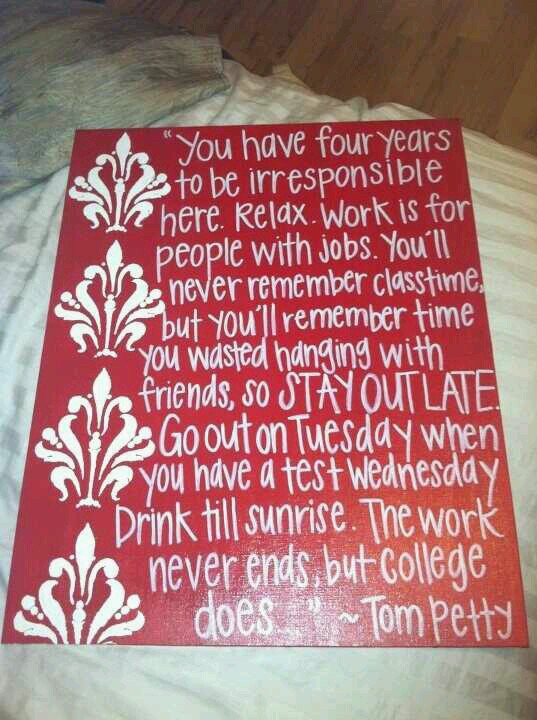 "You have four years
to be irresponsible
here. Relax. Work is for
people with jobs. You'll
never remember classtime,
but you'll remember time
you wasted hanging with
friends, so STAY OUT LATE.
Go out on Tuesday when
you have a test Wednesday
Drink till sunrise. The work
never ends, but College
does..." ~ Tom Petty